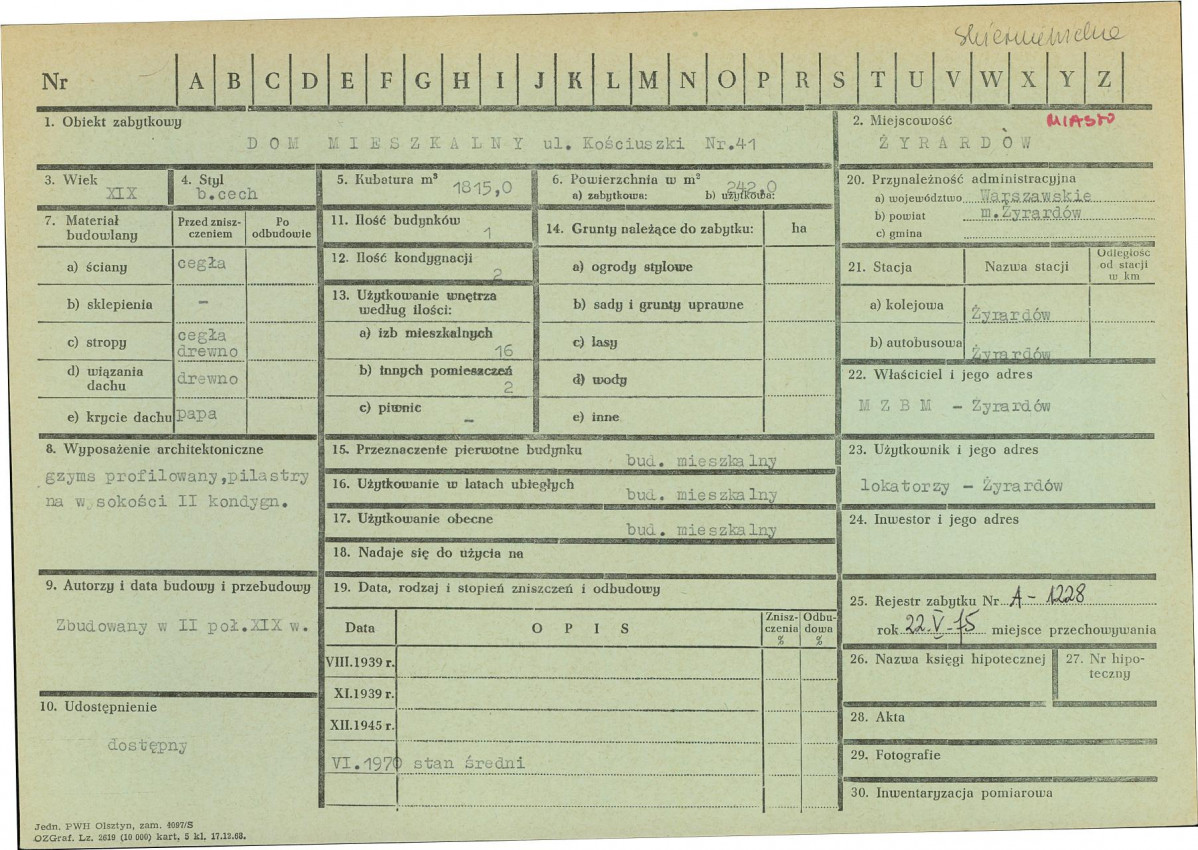 skierniewickie
Nr A B C D E F G H I J K L M N O P R S T U V W X Y Z
1. Obiekt zabytkowy
DOM MIESZKALNY ul. Kościuszki Nr.41
2. Miejscowość MIASTO
ŻYRARDÓW
3. Wiek
XIX
4. Styl
b.cech
5. Kubatura m³
1815,0
6. Powierzchnia w m²
242,0
a) zabytkowa: b) użytkowa:
7. Materiał budowlany
Przed zniszczeniem
Po odbudowie
a) ściany cegła
b) sklepienia –
c) stropy cegła
drewno
d) wiązania
dachu drewno
e) krycie dachu papa
8. Wyposażenie architektoniczne
gzyms profilowany,pilastry
na w sokości II kondygn.
9. Autorzy i data budowy i przebudowy
Zbudowany w II poł.XIX w.
10. Udostępnienie
dostępny
11. Ilość budynków
1
12. Ilość kondygnacji
2
13. Użytkowanie wnętrza
według ilości:
a) izb mieszkalnych
16
b) innych pomieszczeń
2
c) piwnic
–
14. Grunty należące do zabytku: ha
a) ogrody stylowe
b) sady i grunty uprawne
c) lasy
d) wody
e) inne
15. Przeznaczenie pierwotne budynku
bud. mieszkalny
16. Użytkowanie w latach ubiegłych
bud. mieszkalny
17. Użytkowanie obecne
bud. mieszkalny
18. Nadaje się do użycia na
19. Data, rodzaj i stopień zniszczeń i odbudowy
Data OPIS Znisz-czenia % Odbu-dowa %
VIII.1939 r.
XI.1939 r.
XII.1945 r.
VI.1970 stan średni
20. Przynależność administracyjna
a) województwo Warszawskie
b) powiat m.Żyrardów
c) gmina
21. Stacja Nazwa stacji Odległość od stacji w km
a) kolejowa Żyrardów
b) autobusowa Żyrardów
22. Właściciel i jego adres
M Z B M – Żyrardów
23. Użytkownik i jego adres
lokatorzy – Żyrardów
24. Inwestor i jego adres
25. Rejestr zabytku Nr A-1228
rok 22.V.75 miejsce przechowywania
26. Nazwa księgi hipotecznej
27. Nr hipo-
teczny
28. Akta
29. Fotografie
30. Inwentaryzacja pomiarowa
Jedn. PWH Olsztyn, zam. 4097/S
OZGraf. Lz. 2619 (10 000) kart, 5 kl. 17.12.68.